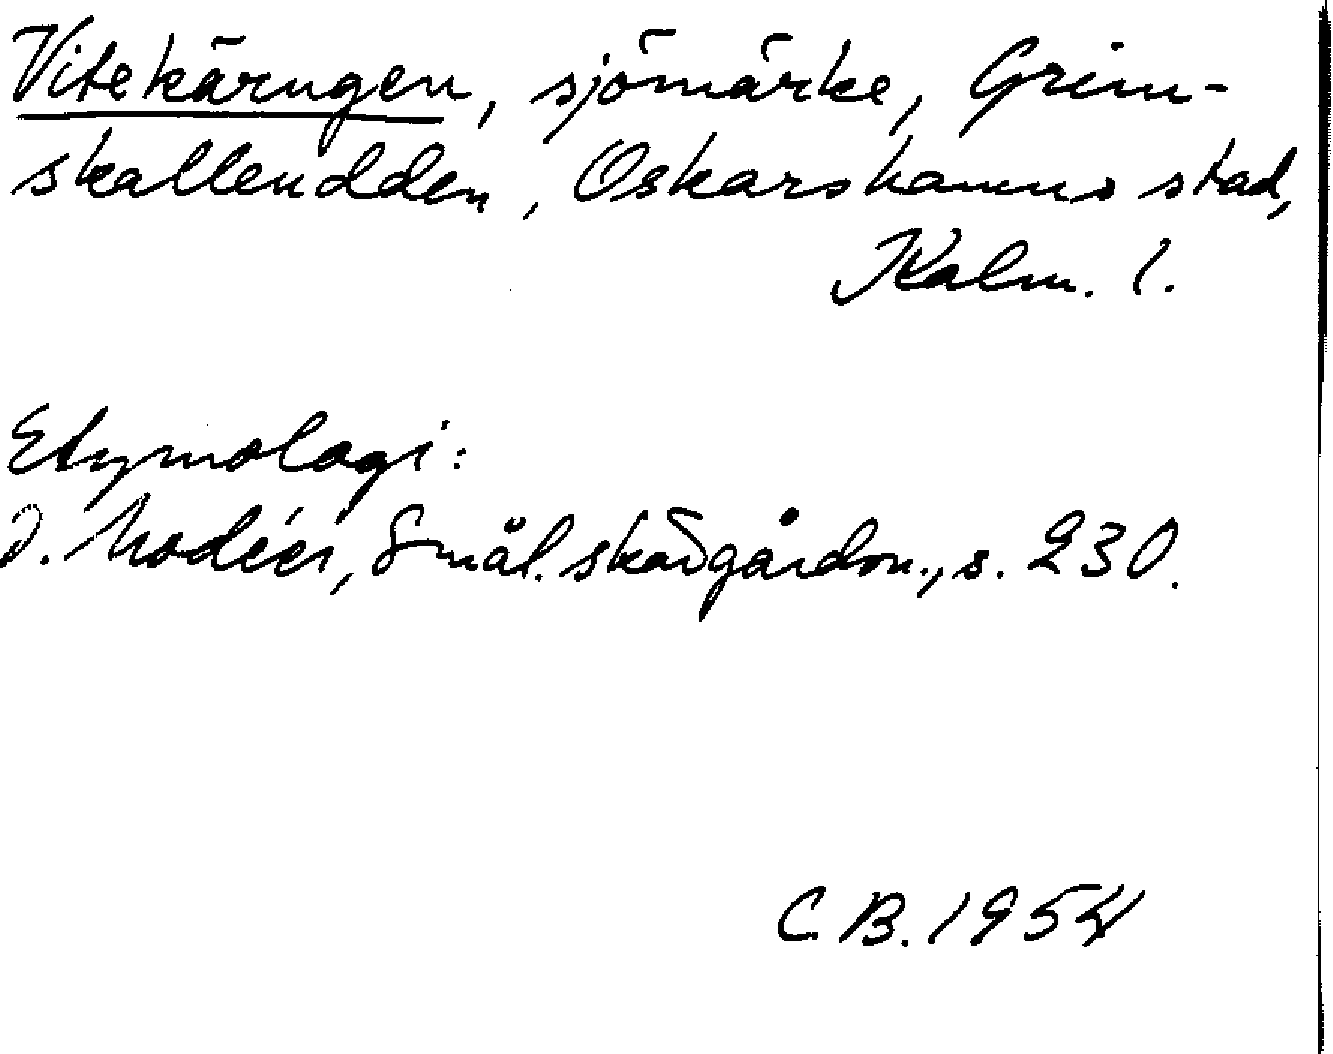 Vitekäringen, sjömärke, Grim-
skalleudden, Oskarshamns stad,
Kalm. l.
Etymologi:
I. Modéer, Smål. skärgårdsn., s. 230.
C.B. 1954